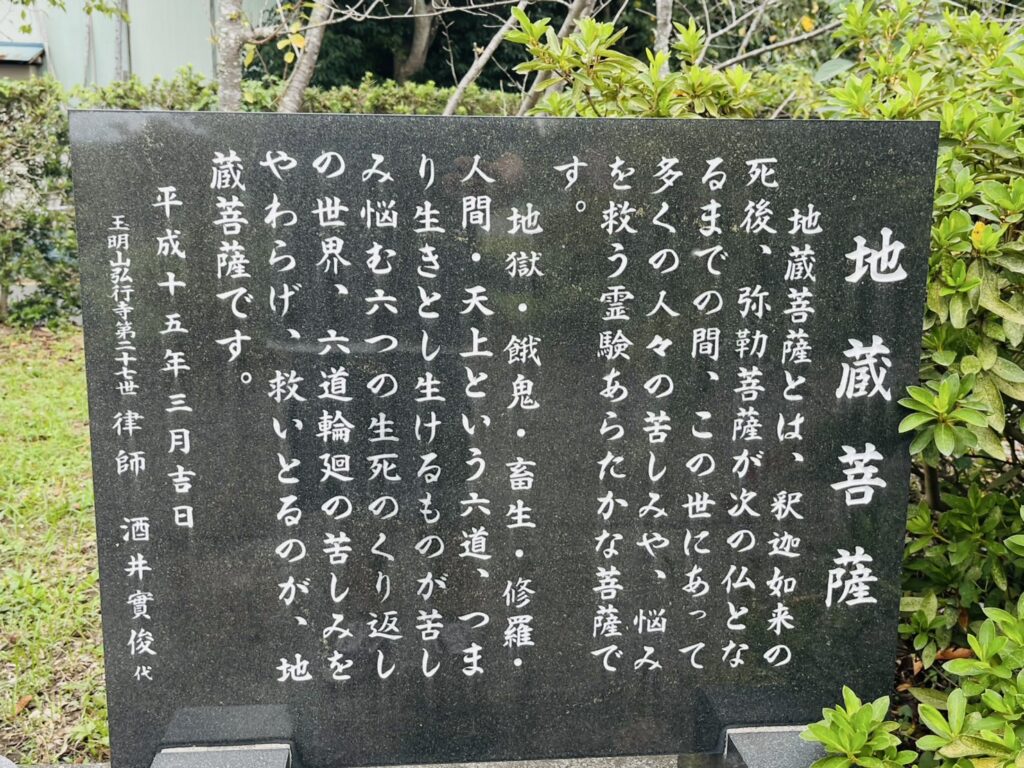 地蔵菩薩
地蔵菩薩とは、釈迦如来の
死後、弥勒菩薩が次の仏とな
るまでの間、この世にあって
多くの人々の苦しみや、悩み
を救う霊験あらたかな菩薩で
す。
地獄・餓鬼・畜生・修羅・
人間・天上という六道、つま
り生きとし生けるものが苦し
み悩む六つの生死のくり返し
の世界、六道輪廻の苦しみを
やわらげ、救いとるのが、地
蔵菩薩です。
平成十五年三月吉日
玉明山弘行寺第二十七世 律師 酒井實俊代